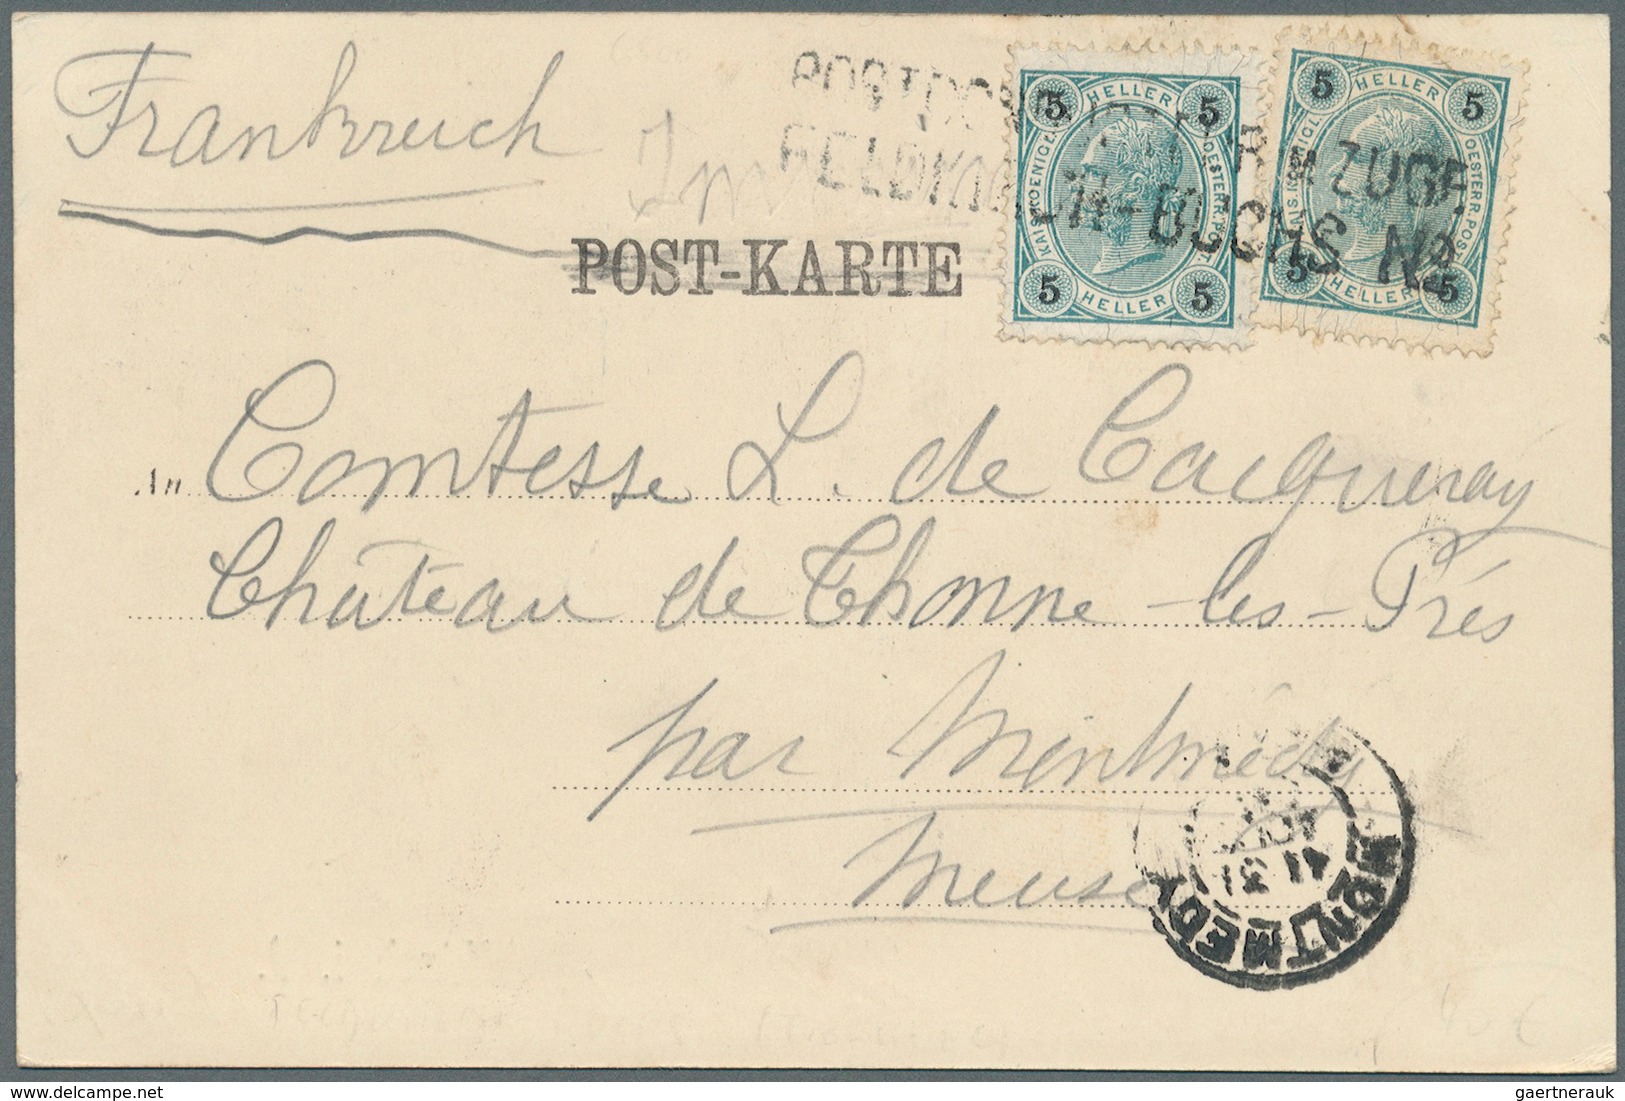 Frankreich
POSTCONDUCTEUR IM ZUGE
FELDKIRCH-BUCHS No
5 HELLER 5
KAIS. KOENIGL. OESTERR. POST
5 HELLER 5
5 HELLER 5
KAIS. KOENIGL. OESTERR. POST
5 HELLER 5
POST-KARTE
An Comtesse L. de Cacqueray
Château de Thonne-les-Prés
par Montmédy
Meuse
MONTMEDY
40 €
Delcampe.net
gaertnerauk